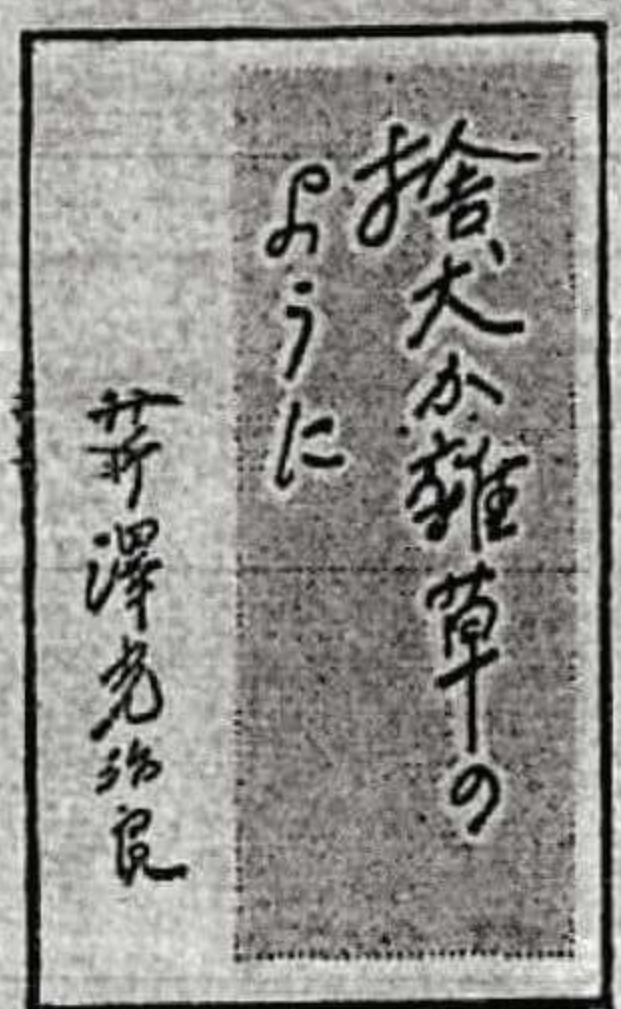 捨犬か雑草の
ように
芹澤光治良